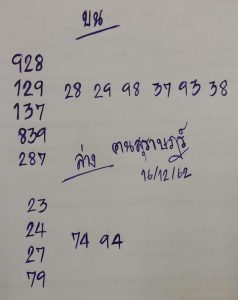 บน
928
129 28 29 98 37 93 38
137
839
287 ล่าง คนสุราษฎร์
16/12/62
23
24
74 94
27
79